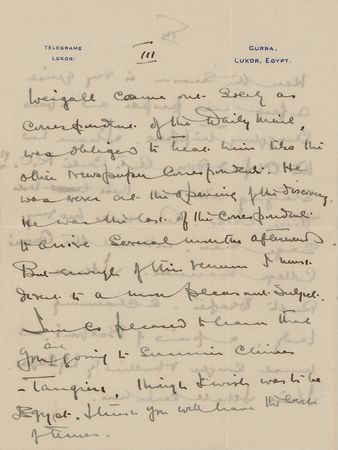 TELEGRAMS
LUXOR.
GURNA,
LUXOR, EGYPT.
III
Weigall came out solely as
Correspondent of the Daily Mail,
was obliged to treat him like the
other Newspaper Correspondents. He
was never at the opening of the discovery.
He was the last of the Correspondents
to arrive several months afterwards.
But enough of this venom I must
divert to a more pleasant subject.
I am so pleased to learn that
you are going to Summer Climes
– Tangiers, though I wish was to be
Egypt. I think you will have the
of times.